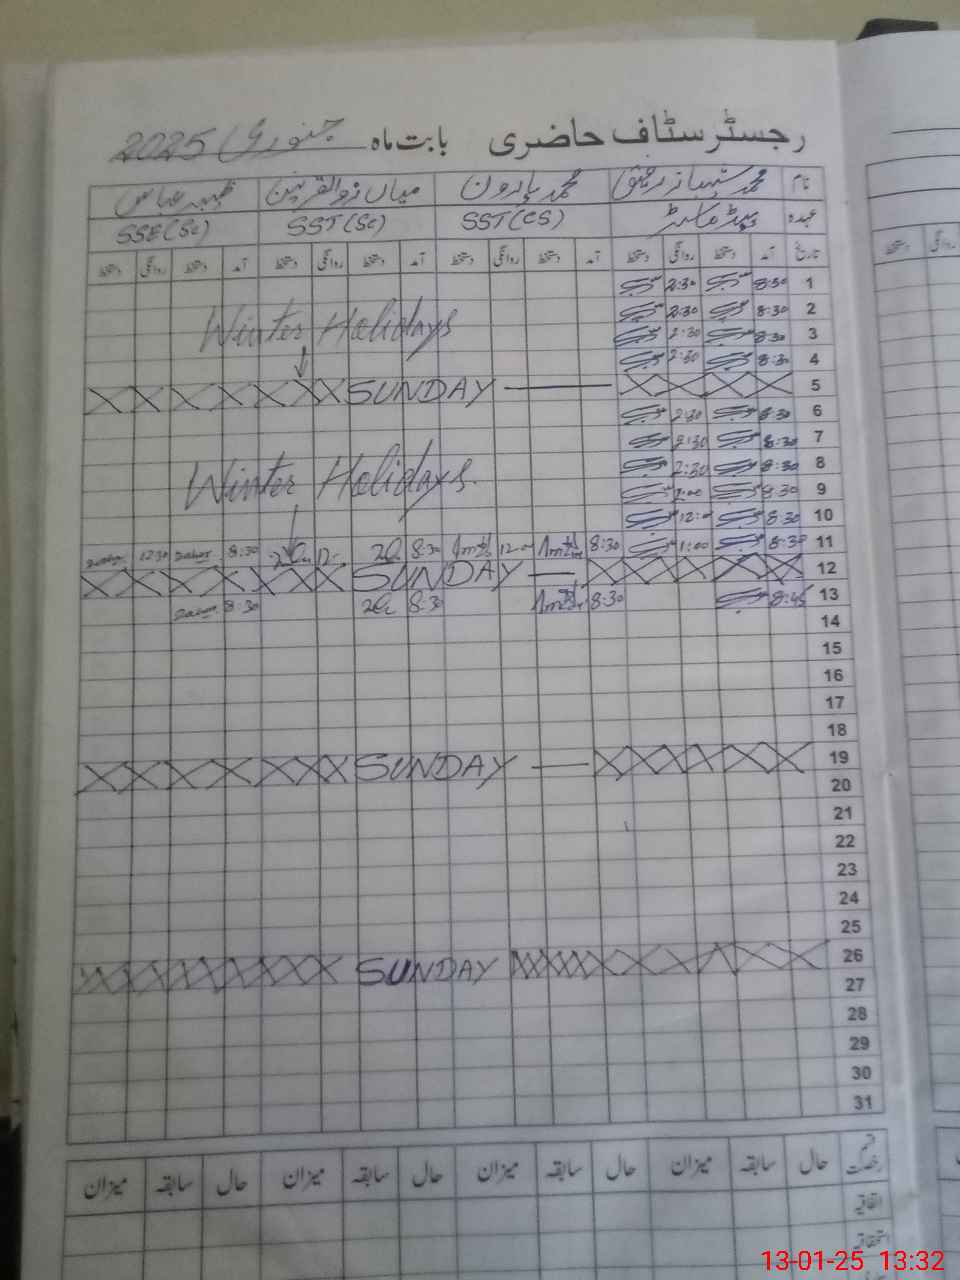 رجسٹر سٹاف حاضری بابت ماہ جنوری 2025
نام محمد شہباز رفیق محمد ہارون میاں ذوالقرنین ظہیر عباس
عہدہ ہیڈ ماسٹر SST(CS) SST(SC) SSE(SC)
تاریخ آمد دستخط روانگی دستخط آمد دستخط روانگی دستخط آمد دستخط روانگی دستخط آمد دستخط روانگی دستخط
1 8:30 2:30
2 8:30 2:30 Winter Holidays
3 8:30 2:30
4 8:30 2:30
5 SUNDAY
6 8:30 2:30
7 8:30 2:30
8 8:30 2:30 Winter Holidays
9 8:30 2:00
10 8:30 12:00
11 8:30 1:00 8:30 12:00 8:30 12:- 8:30 12:30
12 SUNDAY
13 8:45 8:30 8:30 8:30
14
15
16
17
18
19 SUNDAY
20
21
22
23
24
25
26 SUNDAY
27
28
29
30
31
قسم رخصت حال سابقہ میزان حال سابقہ میزان حال سابقہ میزان حال سابقہ میزان
اتفاقیہ
استحقاقیہ
13-01-25 13:32